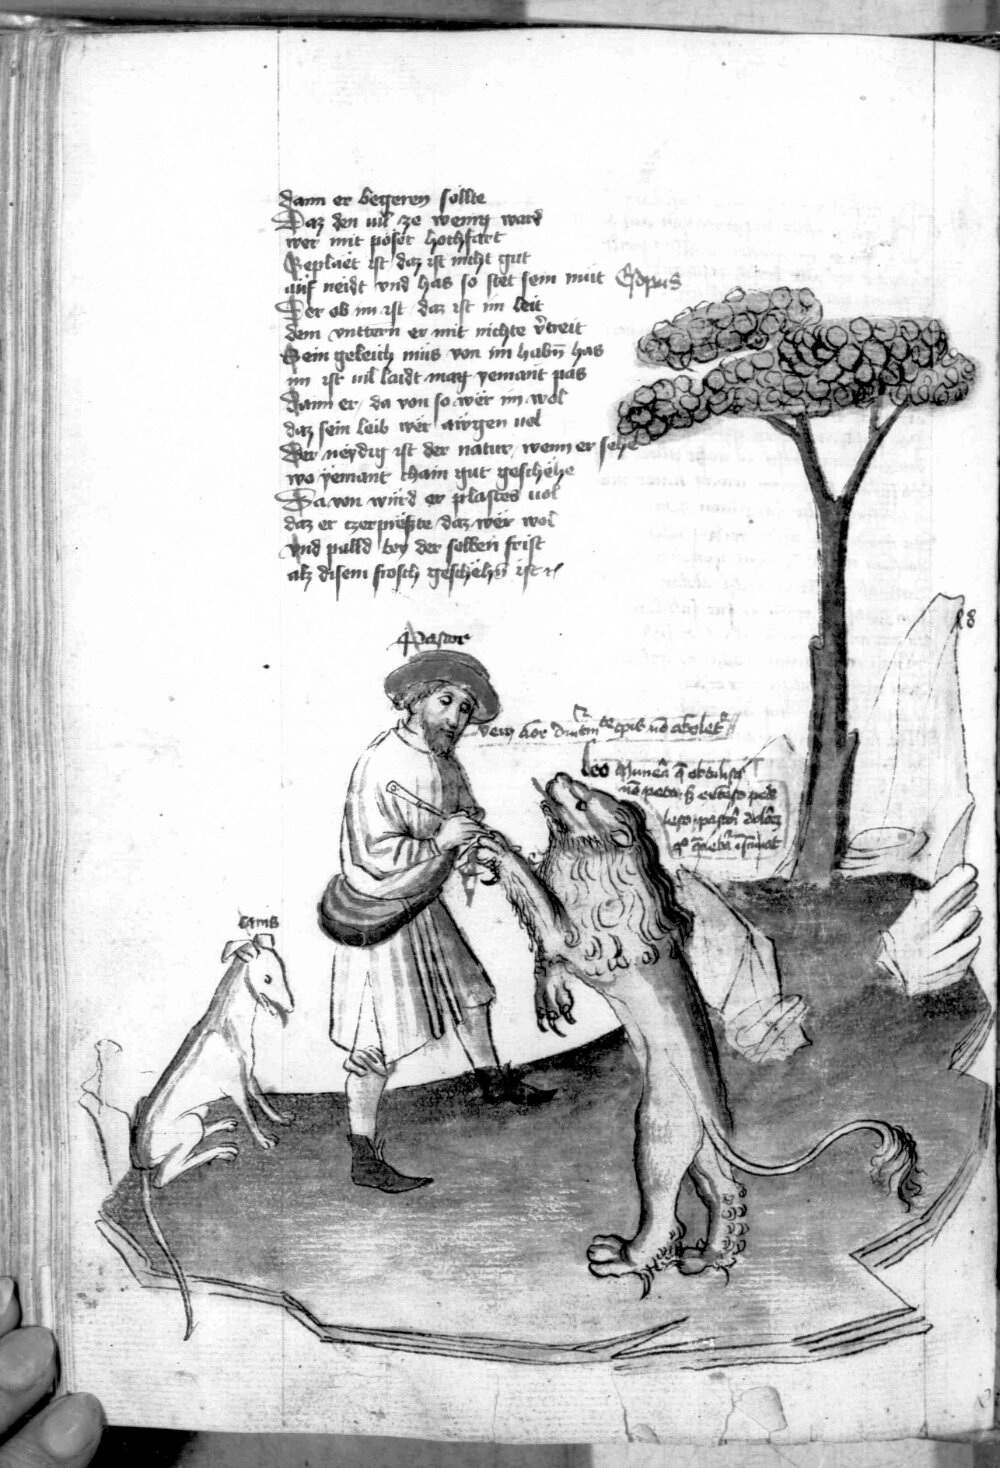 dann er begeren sollte
Daz den uil ze wenig ward
wer mit pöser hochfart
Geplaet ist daz ist nicht gut
auf neidt vnd has so stet sein müt Esopus
Der ob im ist daz ist im leit
dem vnttern er mit nichte v̄treit
Sein geleich mus von im habn̄ has
im ist uil laidt mag yemant pas
dann er / da von so wër im wol
daz sein leib wër airgen uol
Der neydig ist der natur / wenn er sehe
wo yemant chain gut geschëhe
Da von würd er plastes uol
daz er czerpreszte / daz wër wol
vnd palld bey der selben frist
alz disem frosch geschëhn̄ ist
18
Pastor
leo Munera
nō pastor
canis